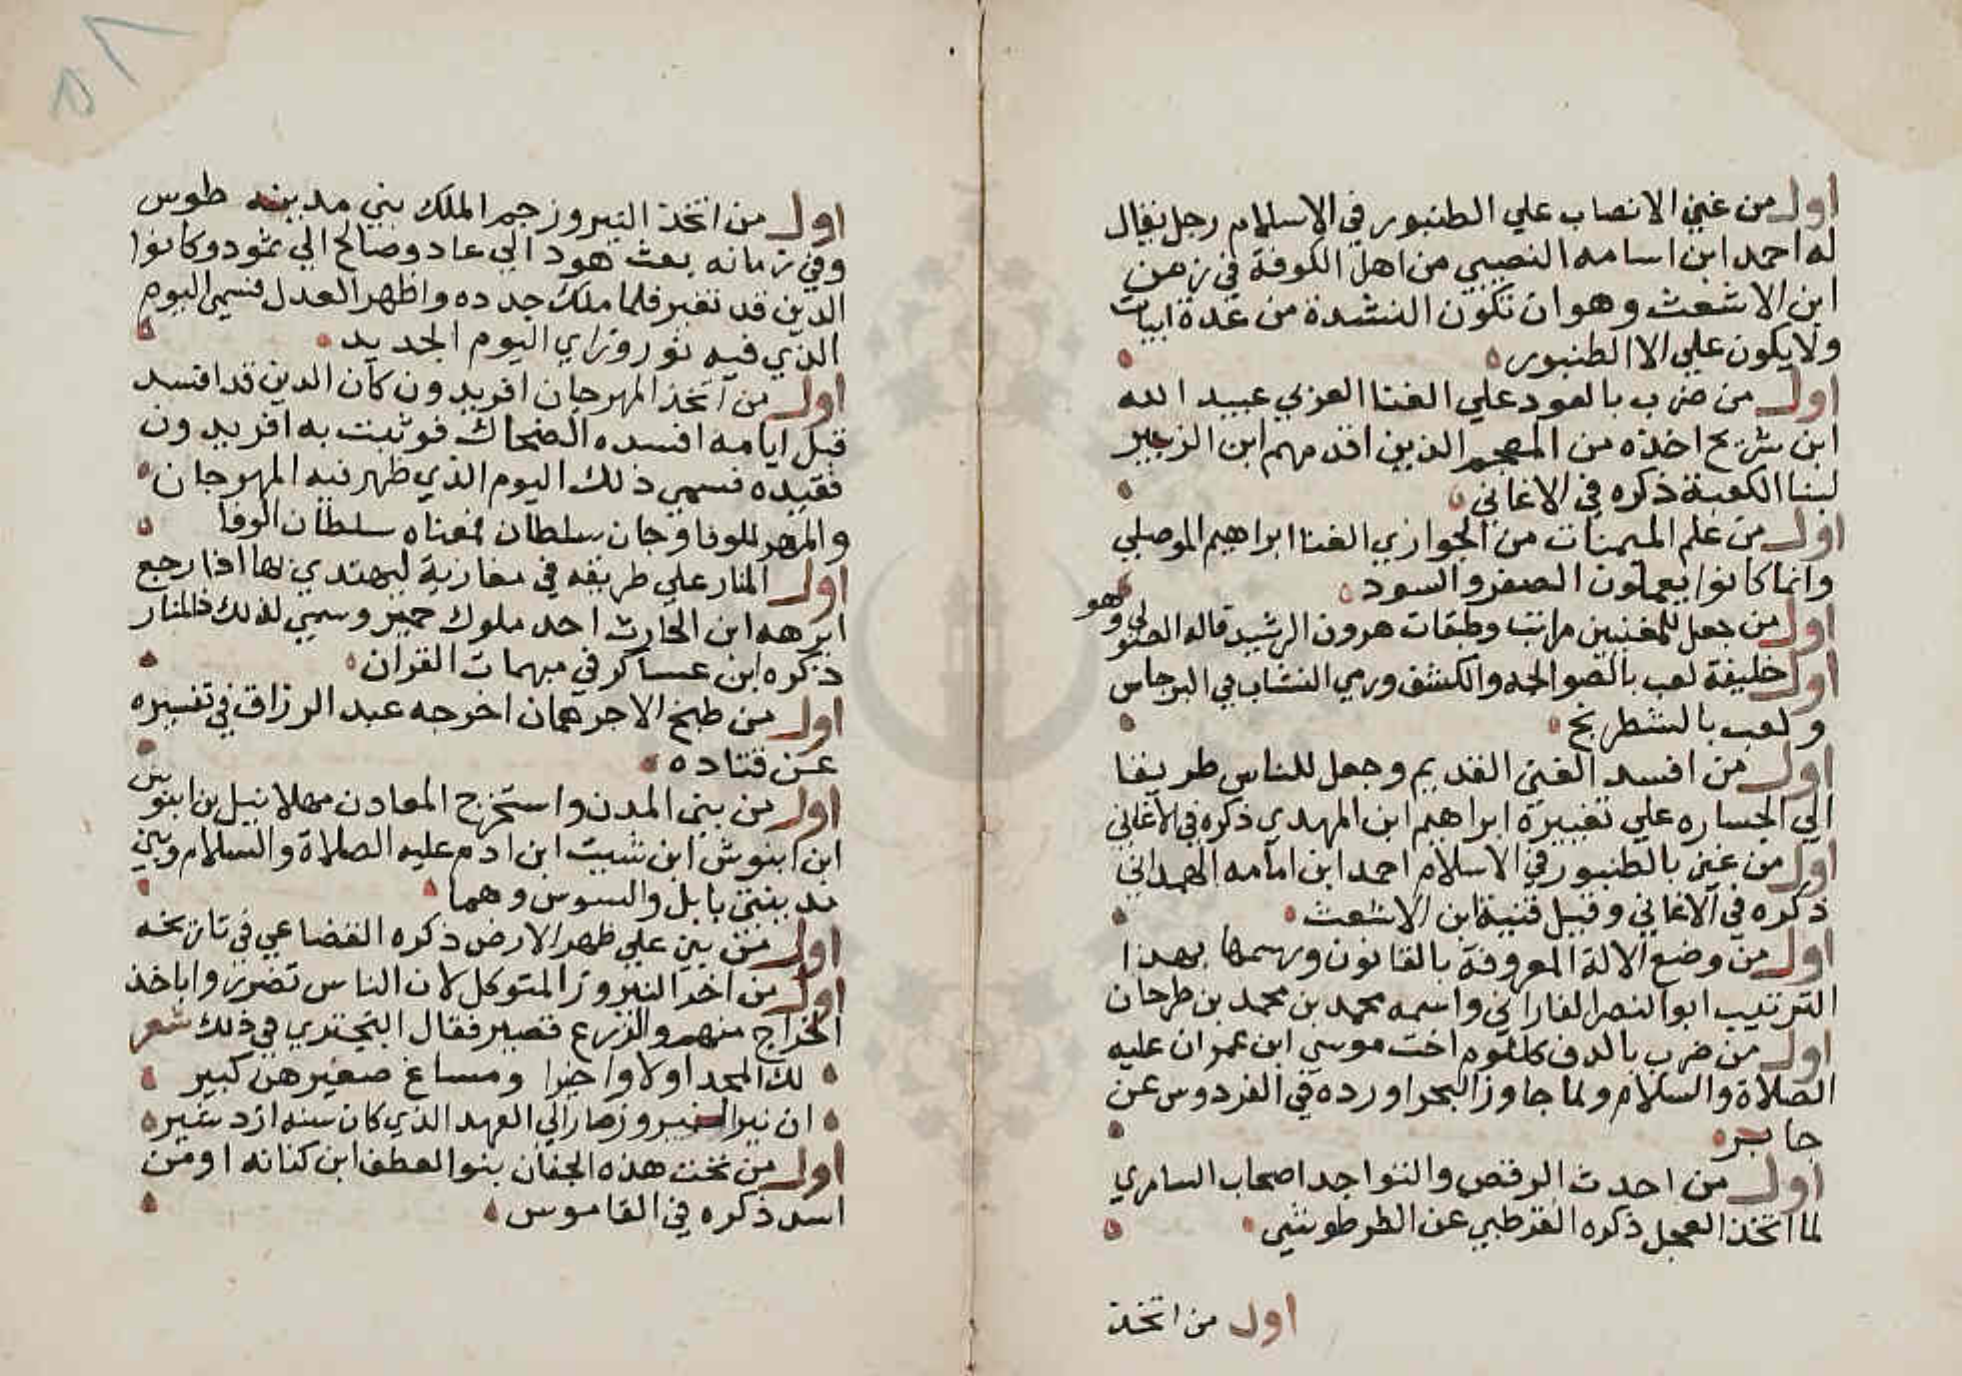 اول من غني الانصاب علي الطنبور في الاسلام رجل يقال
له احمد ابن اسامه النصيبي من اهل الكوفة في زمن
ابن الاشعث وهو ان تكون النشدة من عدة ابيات
ولا يكون علي الا الطنبور
اول من ضرب بالعود علي الغنا العربي عبيد الله
ابن شريح اخذه من العجم الذين اقدمهم ابن الزبير
لبنا الكعبة ذكره في الاغاني
اول من علم المثمنات من الجواري الغنا ابراهيم الموصلي
وانما كانوا يعملون الصفر والسود
اول من جعل للمغنيين مراتب وطبقات هرون الرشيد قاله الصولي وهو
اول خليفة لعب بالصوالجه والكشف ورمي النشاب في البرجاس
ولعب بالشطرنج
اول من افسد الغني القديم وجعل للناس طريقا
الي الجساره علي تغييرة ابراهيم ابن المهدي ذكره في الاغاني
اول من غني بالطنبور في الاسلام احمد ابن امامه الهمداني
ذكره في الاغاني وقيل قتيبة ابن الاشعث
اول من وضع الالة المعروفة بالقانون ورسمها بهذا
الترتيب ابو النصر الفارابي واسمه محمد بن محمد بن طرحان
اول من ضرب بالدف كلثوم اخت موسي ابن عمران عليه
الصلاة والسلام ولما جاوز البحر اورده في الفردوس عن
جابر
اول من احدث الرقص والتواجد اصحاب السامري
لما اتخذ العجل ذكره القرطبي عن الطرطوشي
اول من اتخذ
اول من اتخذ النيروز جم الملك بني مدينه طوس
وفي زمانه بعث هود الي عاد وصالح الي ثمود وكانوا
الدين قد تغير فلما ملك جدده واظهر العدل فسمي اليوم
الذي فيه نوروز اي اليوم الجديد
اول من اتخذ المهرجان افريدون كان الدين قد افسد
قبل ايامه افسده الضحاك فوثبت به افريدون
فقيده فسمي ذلك اليوم الذي ظهر فيه المهرجان
والمهر للوفا وجان سلطان فمعناه سلطان الوفا
اول المنار علي طريقه في مغازية ليهتدي بها اذا رجع
ابرهه ابن الحارث احد ملوك حمير وسمي لذلك ذالمنار
ذكره ابن عساكر في مبهمات القران
اول من طبخ الاجر همان اخرجه عبد الرزاق في تفسيره
عن قتاده
اول من بني المدن واستخرج المعادن مهلا نيل بن ابنوس
ابن ابنوش ابن شيت ابن ادم عليه الصلاة والسلام وبني
مدينتي بابل والسوس وهما
اول من بني علي ظهر الارض ذكره القضاعي في تاريخه
اول من اخر النيروز المتوكل لان الناس تضرروا باخذ
الخراج منهم والزرع قصير فقال البحتري في ذلك شعر
لك المجد اولا واخيرا ومساغ صغيرهن كبير
ان نيرا النيروز صار الي العهد الذي كان سنه ازدشير
اول من نحت هذه الجفان بنوا لعطف ابن كنانه او من
اسد ذكره في القاموس